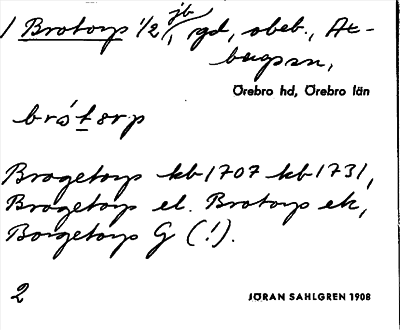 1 Brotorp 1/2 jb, gd, obeb., Ax-
bergs sn,
Örebro hd, Örebro län
brótorp
Brogetorp kb 1707 kb 1731,
Brogetorp el. Brotorp ek,
Borgetorp G (!).
2
JÖRAN SAHLGREN 1908